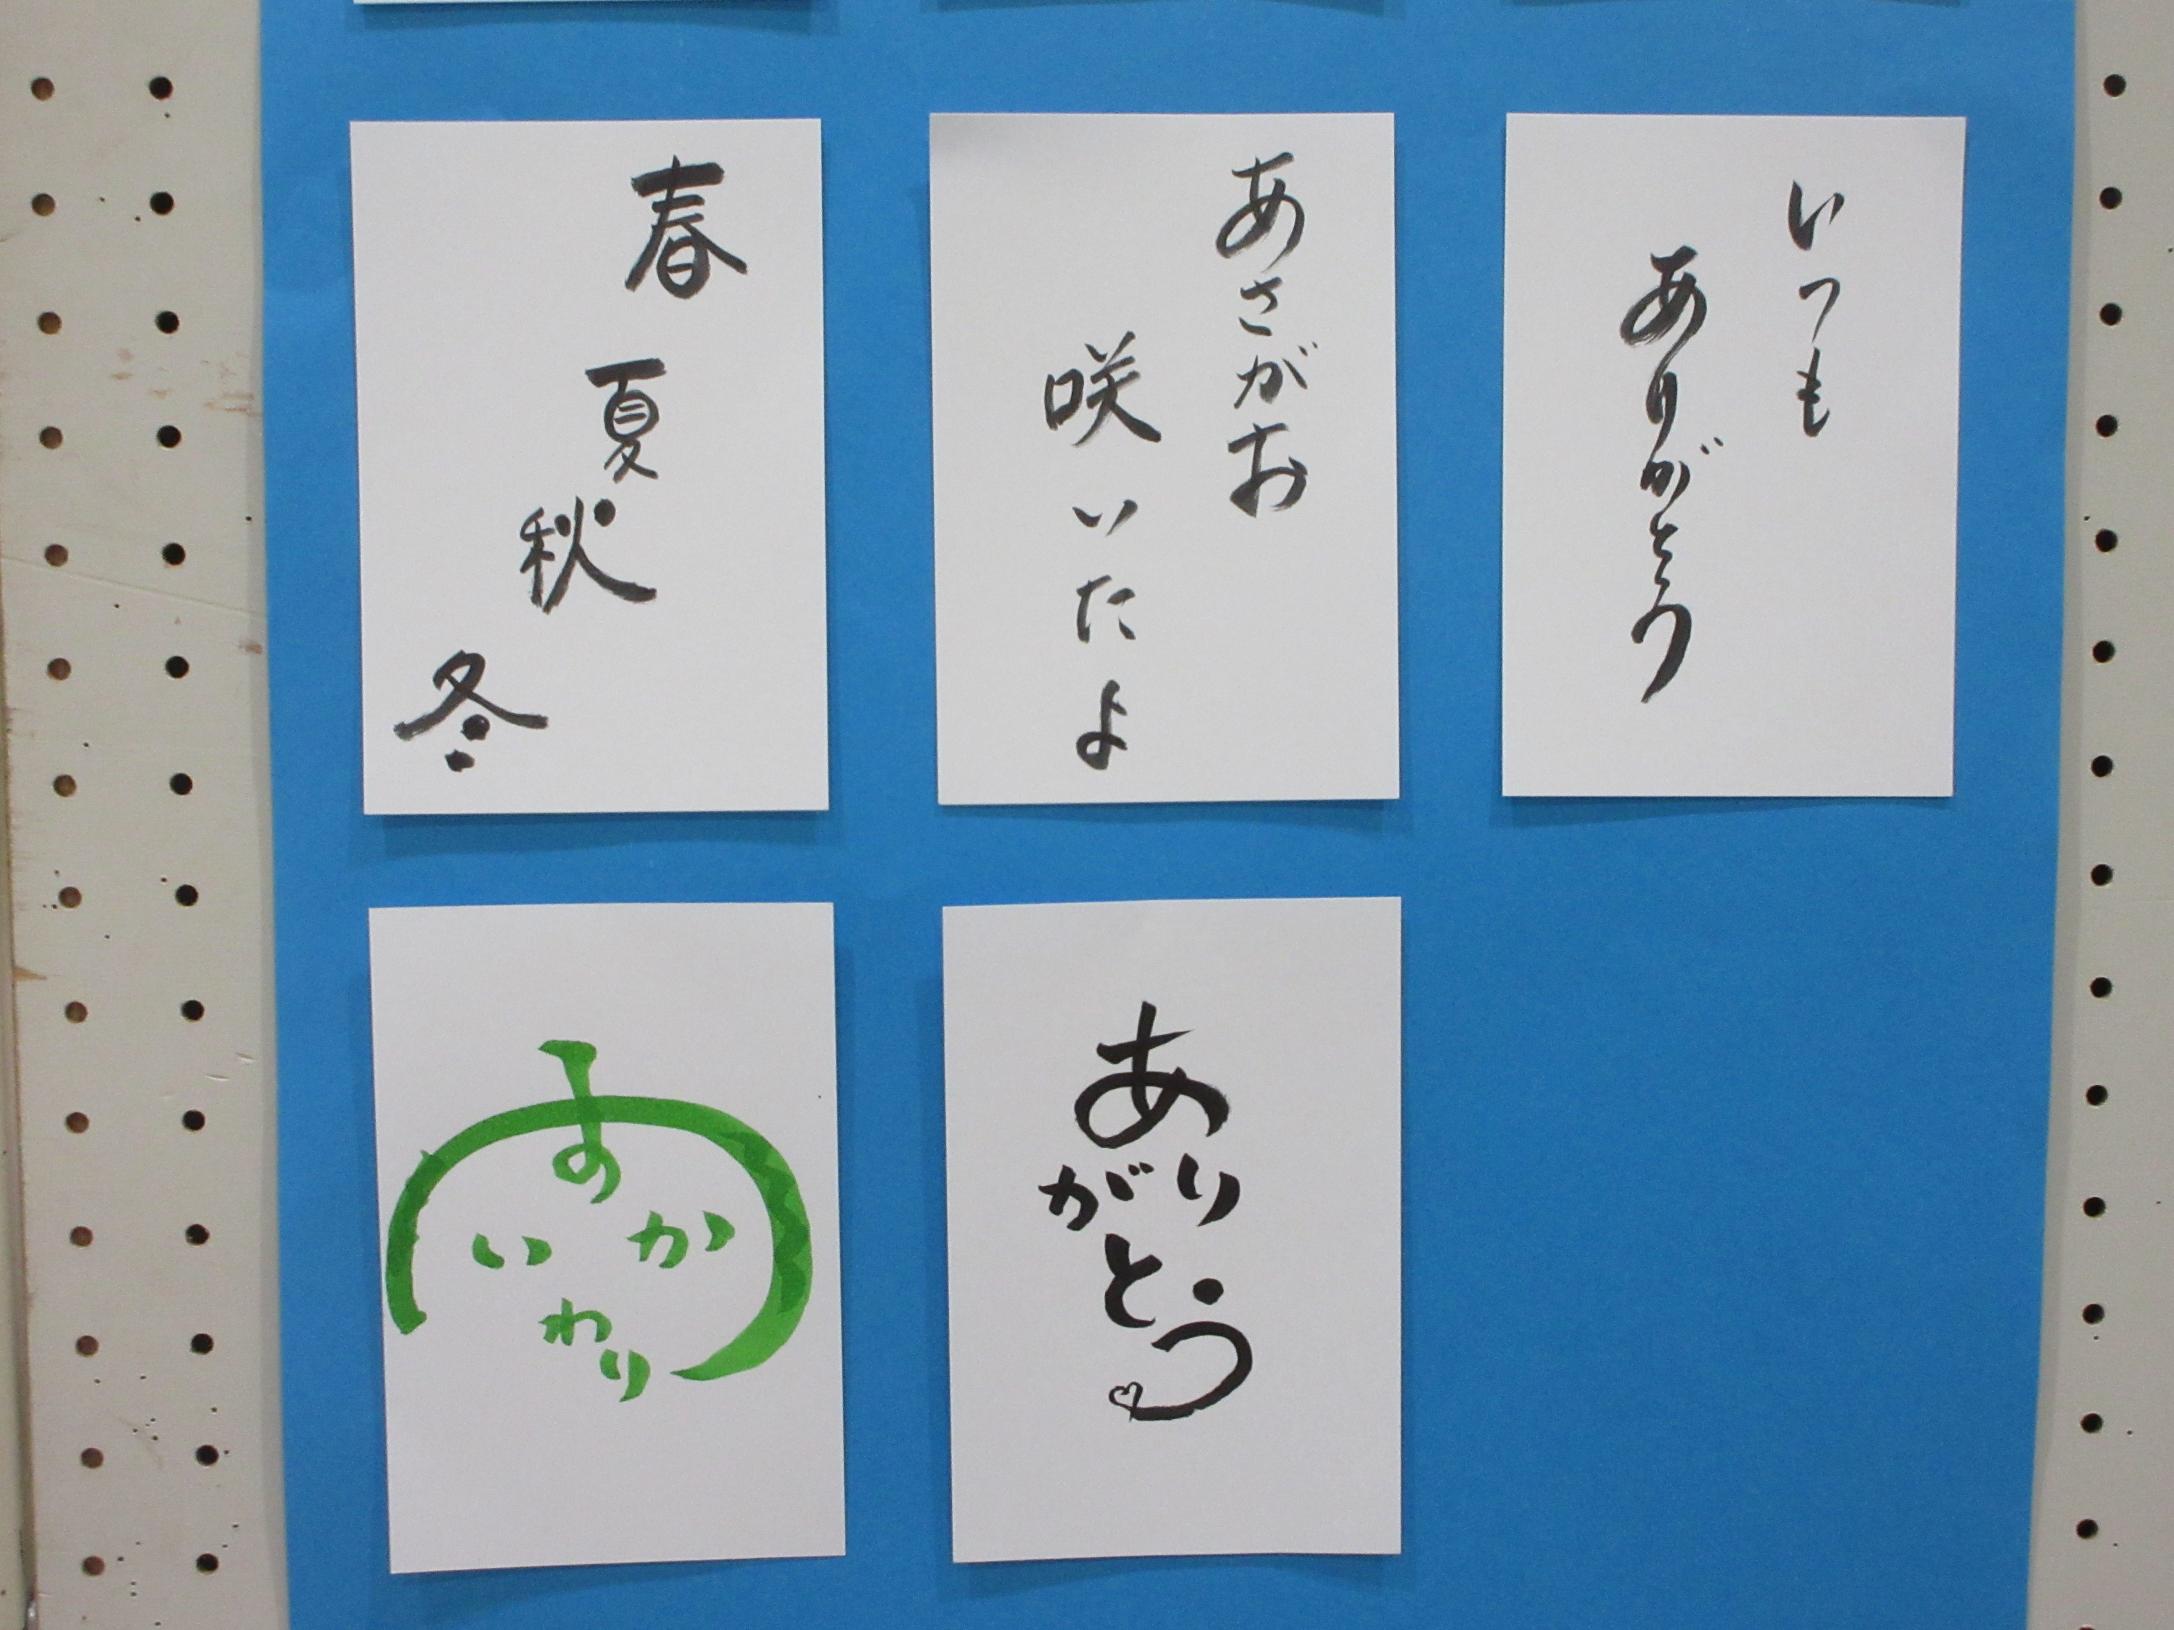 春夏秋冬
あさがお
咲いたよ
いつも
ありがとう
すいかわり
ありがとう